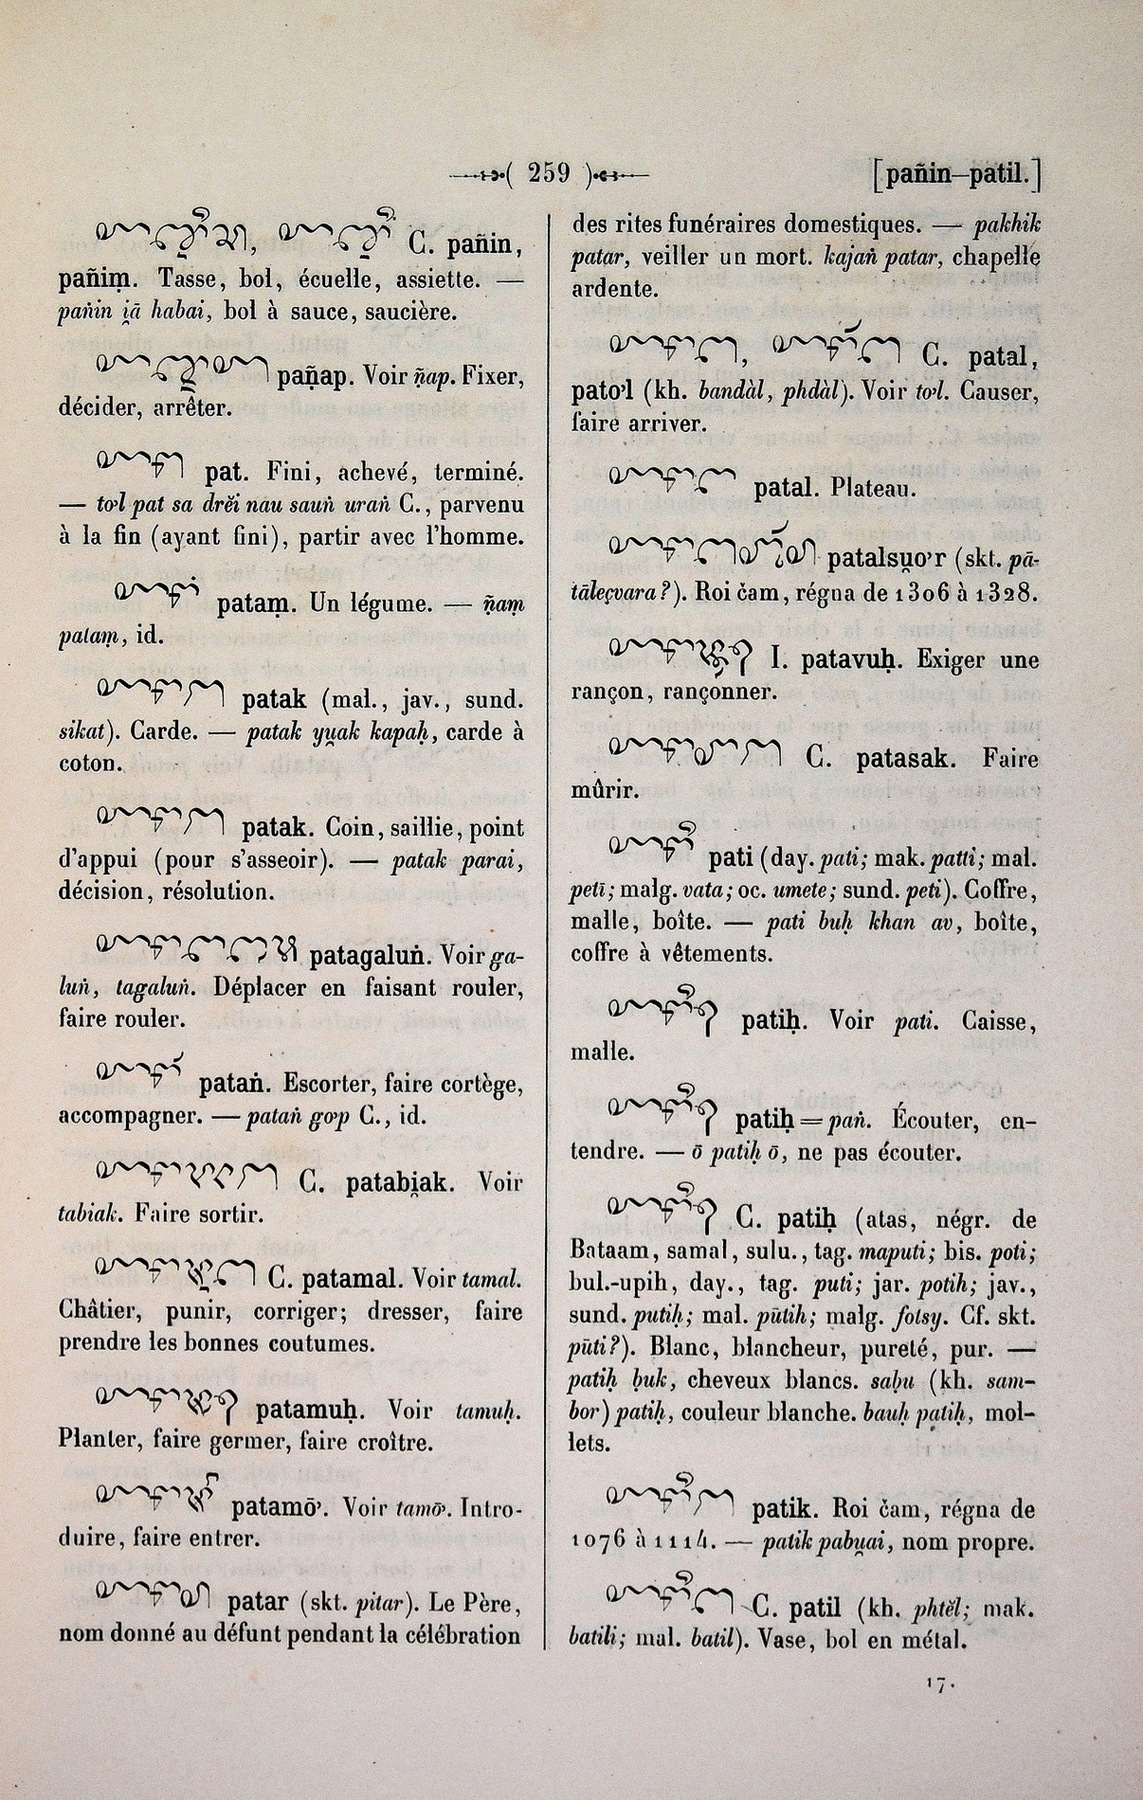 ( 259 )
[pañin–patil.]
C. pañin,
pañiṃ. Tasse, bol, écuelle, assiette. —
pañin i̯ā habai, bol à sauce, saucière.
pañap. Voir ñap. Fixer,
décider, arrêter.
pat. Fini, achevé, terminé.
— tơl pat sa drĕi nau sauṅ uraṅ C., parvenu
à la fin (ayant fini), partir avec l'homme.
pataṃ. Un légume. — ñaṃ
pataṃ, id.
patak (mal., jav., sund.
sikat). Carde. — patak yu̯ak kapaḥ, carde à
coton.
patak. Coin, saillie, point
d'appui (pour s'asseoir). — patak parai,
décision, résolution.
patagaluṅ. Voir ga-
luṅ, tagaluṅ. Déplacer en faisant rouler,
faire rouler.
pataṅ. Escorter, faire cortège,
accompagner. — pataṅ gơp C., id.
C. patabi̯ak. Voir
tabiak. Faire sortir.
C. patamal. Voir tamal.
Châtier, punir, corriger; dresser, faire
prendre les bonnes coutumes.
patamuḥ. Voir tamuḥ.
Planter, faire germer, faire croître.
patamơ̄. Voir tamơ̄. Intro-
duire, faire entrer.
patar (skt. pitar). Le Père,
nom donné au défunt pendant la célébration
des rites funéraires domestiques. — pakhik
patar, veiller un mort. kajaṅ patar, chapelle
ardente.
C. patal,
patơl (kh. bandàl, phdàl). Voir tơl. Causer,
faire arriver.
patal. Plateau.
patalsu̯ơr (skt. pā-
tāleçvara?). Roi čam, régna de 1306 à 1328.
I. patavuḥ. Exiger une
rançon, rançonner.
C. patasak. Faire
mûrir.
pati (day. pati; mak. patti; mal.
petī; malg. vata; oc. umete; sund. peti). Coffre,
malle, boîte. — pati buḥ khan av, boîte,
coffre à vêtements.
patiḥ. Voir pati. Caisse,
malle.
patiḥ = paṅ. Écouter, en-
tendre. — ō patiḥ ō, ne pas écouter.
C. patiḥ (atas, négr. de
Bataam, samal, sulu., tag. maputi; bis. poti;
bul.-upih, day., tag. puti; jar. potih; jav.,
sund. putiḥ; mal. pūtih; malg. fotsy. Cf. skt.
pūti?). Blanc, blancheur, pureté, pur. —
patiḥ ḅuk, cheveux blancs. saḅu (kh. sam-
bor) patiḥ, couleur blanche. bauḥ patiḥ, mol-
lets.
patik. Roi čam, régna de
1076 à 1114. — patik pabu̯ai, nom propre.
C. patil (kh. phtĕl; mak.
batili; mal. batil). Vase, bol en métal.
17.